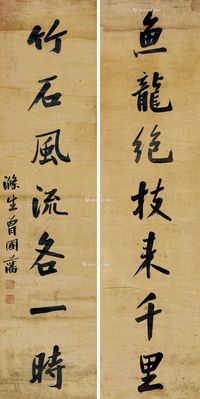 魚龍絶技来千里
竹石風流各一時
滌生曾國藩